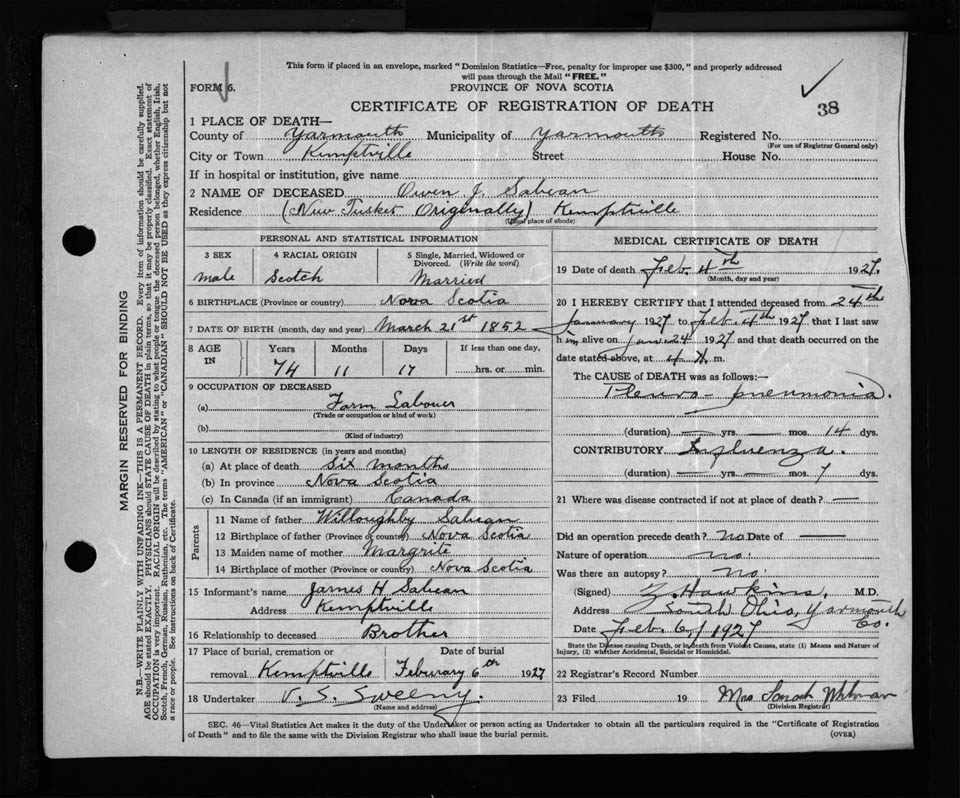 This form if placed in an envelope, marked "Dominion Statistics—Free, penalty for improper use $300," and properly addressed
will pass through the Mail "FREE."
FORM 6. PROVINCE OF NOVA SCOTIA
CERTIFICATE OF REGISTRATION OF DEATH 38
1 PLACE OF DEATH—
County of Yarmouth Municipality of Yarmouth Registered No.
(For use of Registrar General only)
City or Town Kemptville Street House No.
If in hospital or institution, give name
2 NAME OF DECEASED Owen J. Sabean
Residence (New Tusket Originally) Kemptville
(Usual place of abode)
PERSONAL AND STATISTICAL INFORMATION
3 SEX 4 RACIAL ORIGIN 5 Single, Married, Widowed or
Divorced. (Write the word)
male Scotch Married
6 BIRTHPLACE (Province or country) Nova Scotia
7 DATE OF BIRTH (month, day and year) March 21st 1852
8 AGE IN Years Months Days If less than one day,
74 11 17 hrs. or min.
9 OCCUPATION OF DECEASED
(a) Farm Labouer
(Trade or occupation or kind of work)
(b)
(Kind of industry)
10 LENGTH OF RESIDENCE (in years and months)
(a) At place of death Six months
(b) In province Nova Scotia
(c) In Canada (if an immigrant) Canada
Parents
11 Name of father Willoughby Sabean
12 Birthplace of father (Province or country) Nova Scotia
13 Maiden name of mother Margrite
14 Birthplace of mother (Province or country) Nova Scotia
15 Informant's name James H Sabean
Address Kemptville
16 Relationship to deceased Brother
17 Place of burial, cremation or Date of burial
removal Kemptville Feburary 6th 1927
18 Undertaker V. S. Sweeny.
(Name and address)
MEDICAL CERTIFICATE OF DEATH
19 Date of death Feb 4th 1927.
(Month, day and year)
20 I HEREBY CERTIFY that I attended deceased from 24th
January 1927 to Feb. 4th 1927 that I last saw
him alive on Jan. 24 1927 and that death occurred on the
date stated above, at 4 A m.
The CAUSE of DEATH was as follows:—
Pleuro-pneumonia.
(duration) — yrs. — mos. 14 dys.
CONTRIBUTORY Influenza.
(duration) — yrs. — mos. 7 dys.
21 Where was disease contracted if not at place of death? —
Did an operation precede death? no Date of —
Nature of operation no.
Was there an autopsy? no.
(Signed) Z. Hawkins. M.D.
Address South Ohio, Yarmouth
Co.
Date Feb. 6/1927
State the Disease causing Death, or in death from Violent Causes, state (1) Means and Nature of
Injury, (2) whether Accidental, Suicidal or Homicidal.
22 Registrar's Record Number
23 Filed 19 Mrs
(Division Registrar)
SEC. 46—Vital Statistics Act makes it the duty of the Undertaker or person acting as Undertaker to obtain all the particulars required in the "Certificate of Registration
of Death" and to file the same with the Division Registrar who shall issue the burial permit. (OVER)
MARGIN RESERVED FOR BINDING
N.B.—WRITE PLAINLY WITH UNFADING INK—THIS IS A PERMANENT RECORD. Every item of information should be carefully supplied.
AGE should be stated EXACTLY. PHYSICIANS should STATE CAUSE OF DEATH in plain terms, so that it may be properly classified. Exact statement of
OCCUPATION is very important. RACIAL ORIGIN will be described by stating to what people or tongue the deceased person belonged, whether English, Irish,
Scotch, French, German, Russian, Ruthenian, etc. The terms "AMERICAN" or "CANADIAN" SHOULD NOT BE USED as they express citizenship but not
a race or people. See instructions on back of Certificate.